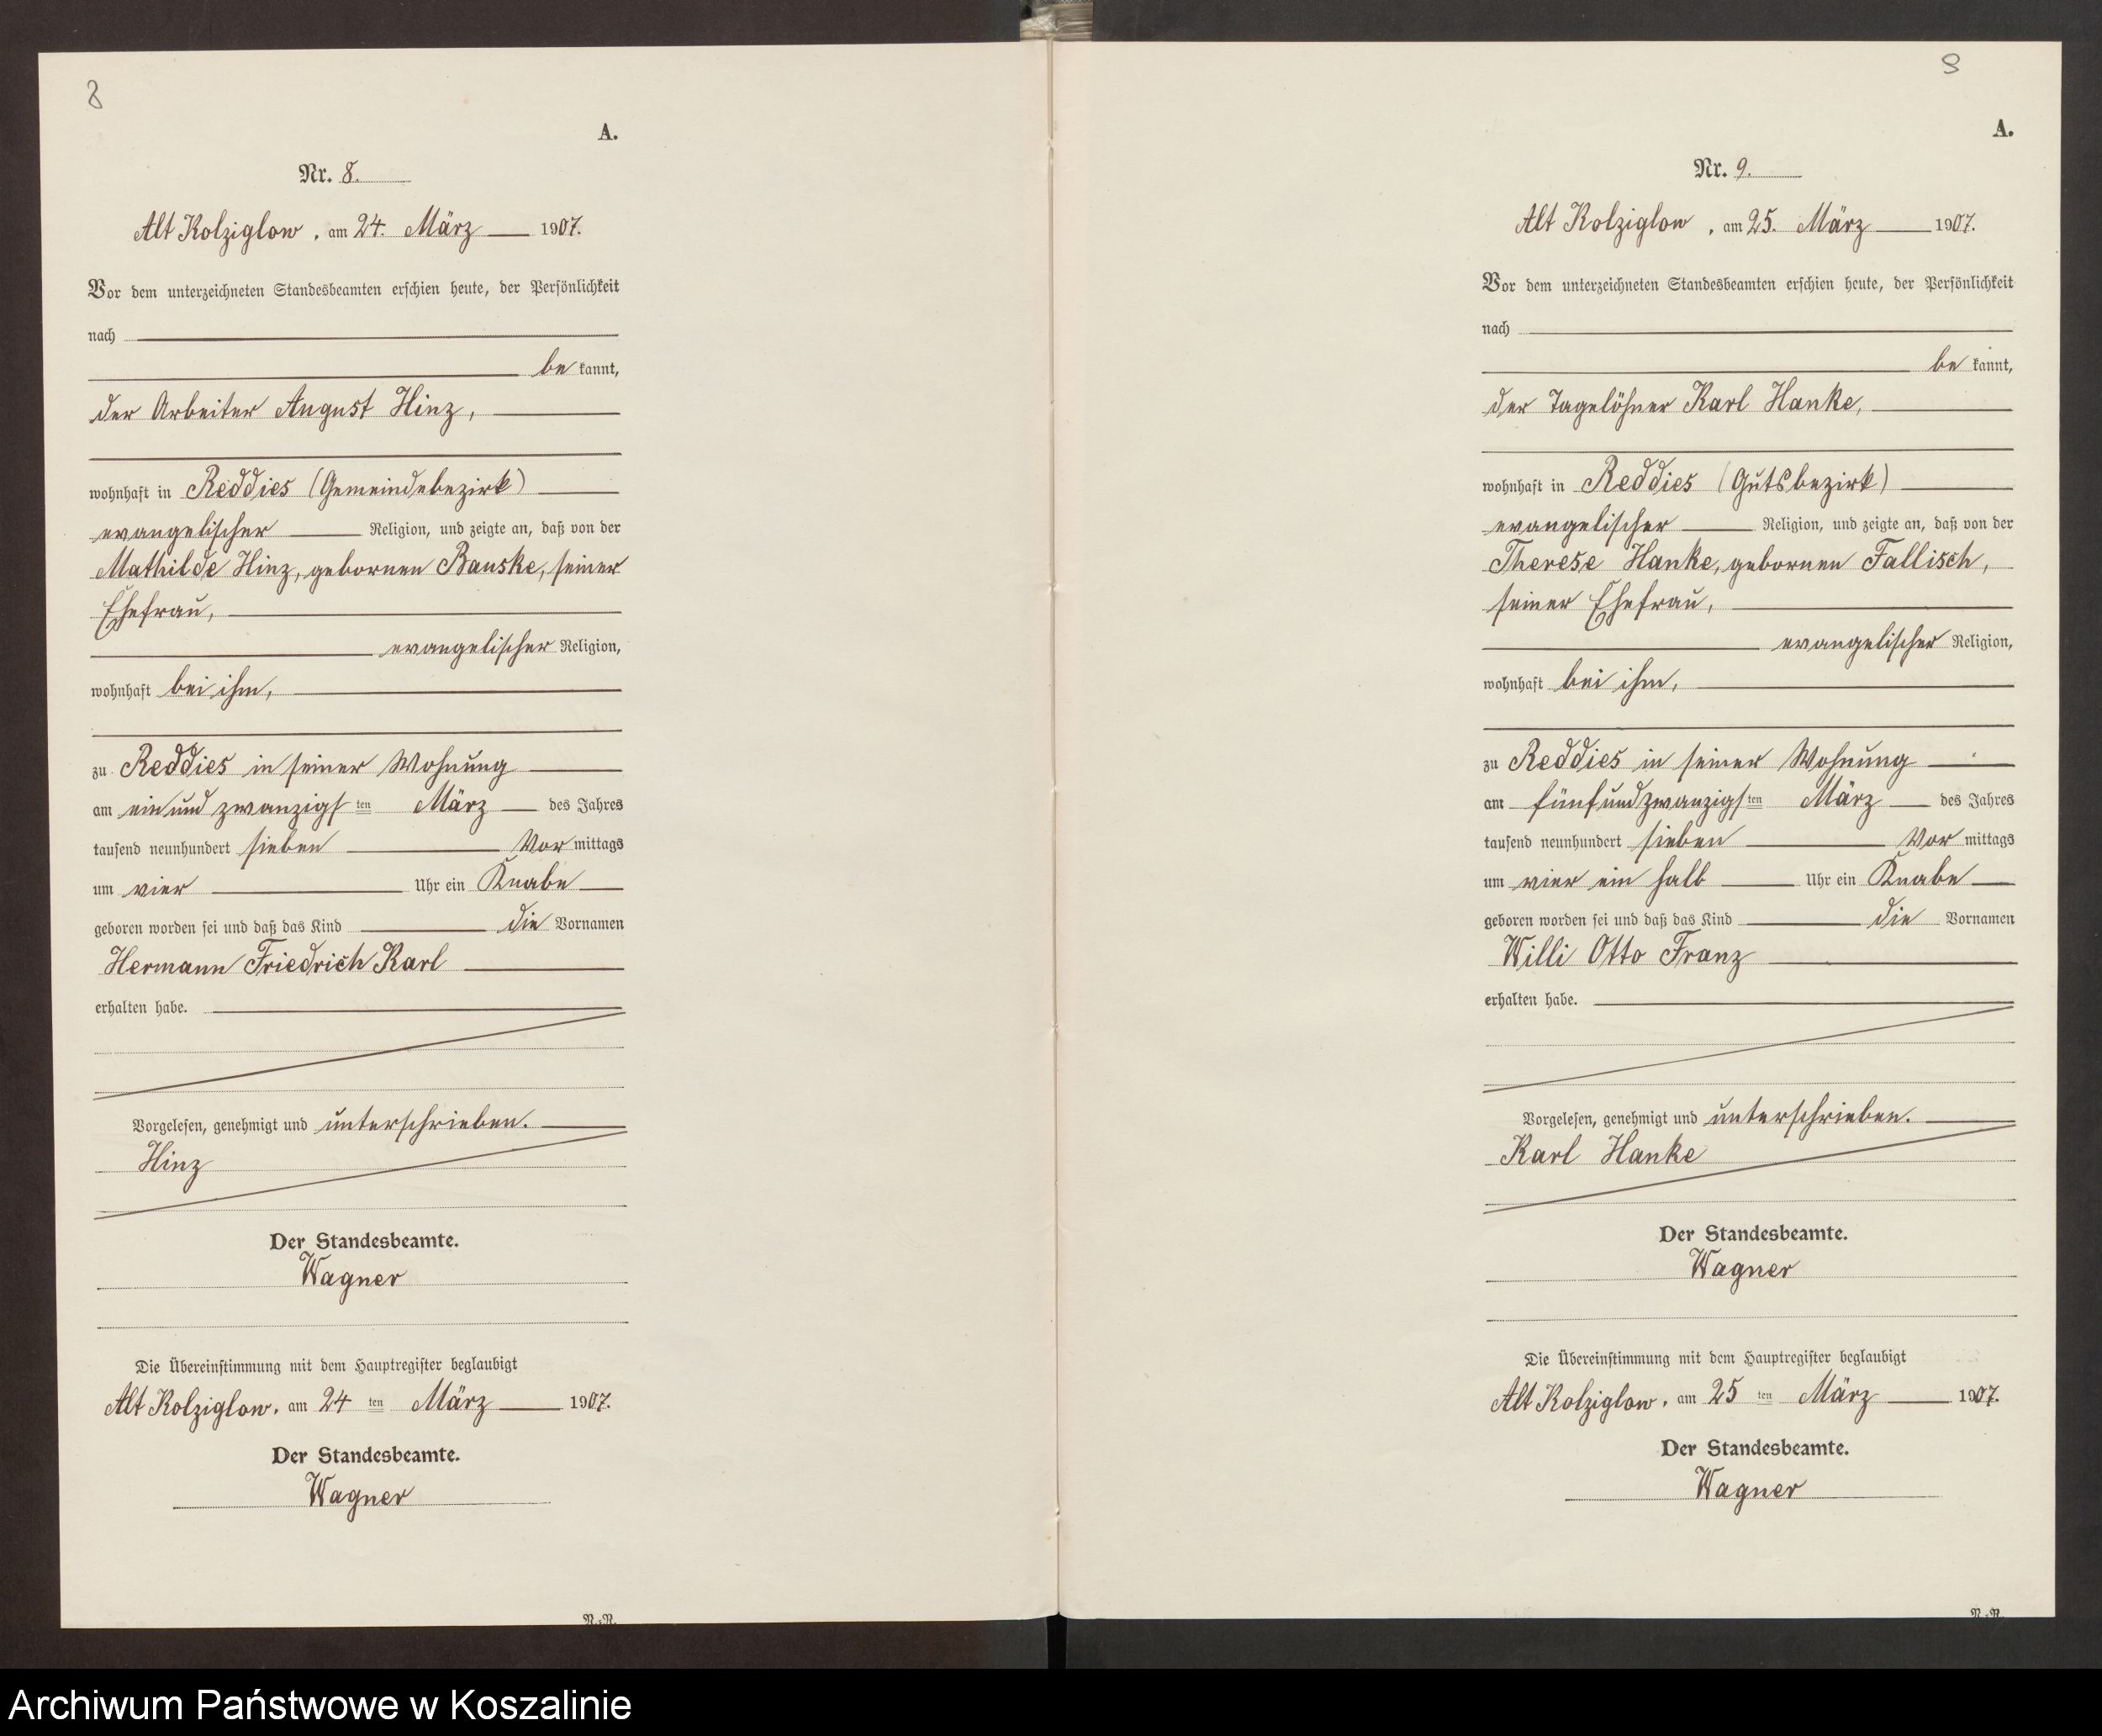 8
A.
Nr. 8.
Alt Kolziglow, am 24. März 1907.
Vor dem unterzeichneten Standesbeamten erschien heute, der Persönlichkeit
nach
be kannt,
der Arbeiter August Hinz,
wohnhaft in Reddies (Gemeindebezirk)
evangelischer Religion, und zeigte an, daß von der
Mathilde Hinz, gebornen Bauske, seiner
Ehefrau,
evangelischer Religion,
wohnhaft bei ihm,
zu Reddies in seiner Wohnung
am ein und zwanzigsten März des Jahres
tausend neunhundert sieben Vor mittags
um vier Uhr ein Knabe
geboren worden sei und daß das Kind die Vornamen
Hermann Friedrich Karl
erhalten habe.
Vorgelesen, genehmigt und unterschrieben.
Hinz
Der Standesbeamte.
Wagner
Die Übereinstimmung mit dem Hauptregister beglaubigt
Alt Kolziglow, am 24 ten März 1907.
Der Standesbeamte.
Wagner
N.-N.
8
A.
Nr. 9.
Alt Kolziglow, am 25. März 1907.
Vor dem unterzeichneten Standesbeamten erschien heute, der Persönlichkeit
nach
be kannt,
der Tagelöhner Karl Hanke,
wohnhaft in Reddies (Gutsbezirk)
evangelischer Religion, und zeigte an, daß von der
Therese Hanke, gebornen Fallisch,
seiner Ehefrau,
evangelischer Religion,
wohnhaft bei ihm,
zu Reddies in seiner Wohnung
am fünf und zwanzigsten März des Jahres
tausend neunhundert sieben Vor mittags
um vier ein halb Uhr ein Knabe
geboren worden sei und daß das Kind die Vornamen
Willi Otto Franz
erhalten habe.
Vorgelesen, genehmigt und unterschrieben.
Karl Hanke
Der Standesbeamte.
Wagner
Die Übereinstimmung mit dem Hauptregister beglaubigt
Alt Kolziglow, am 25 ten März 1907.
Der Standesbeamte.
Wagner
N.-N.
Archiwum Państwowe w Koszalinie